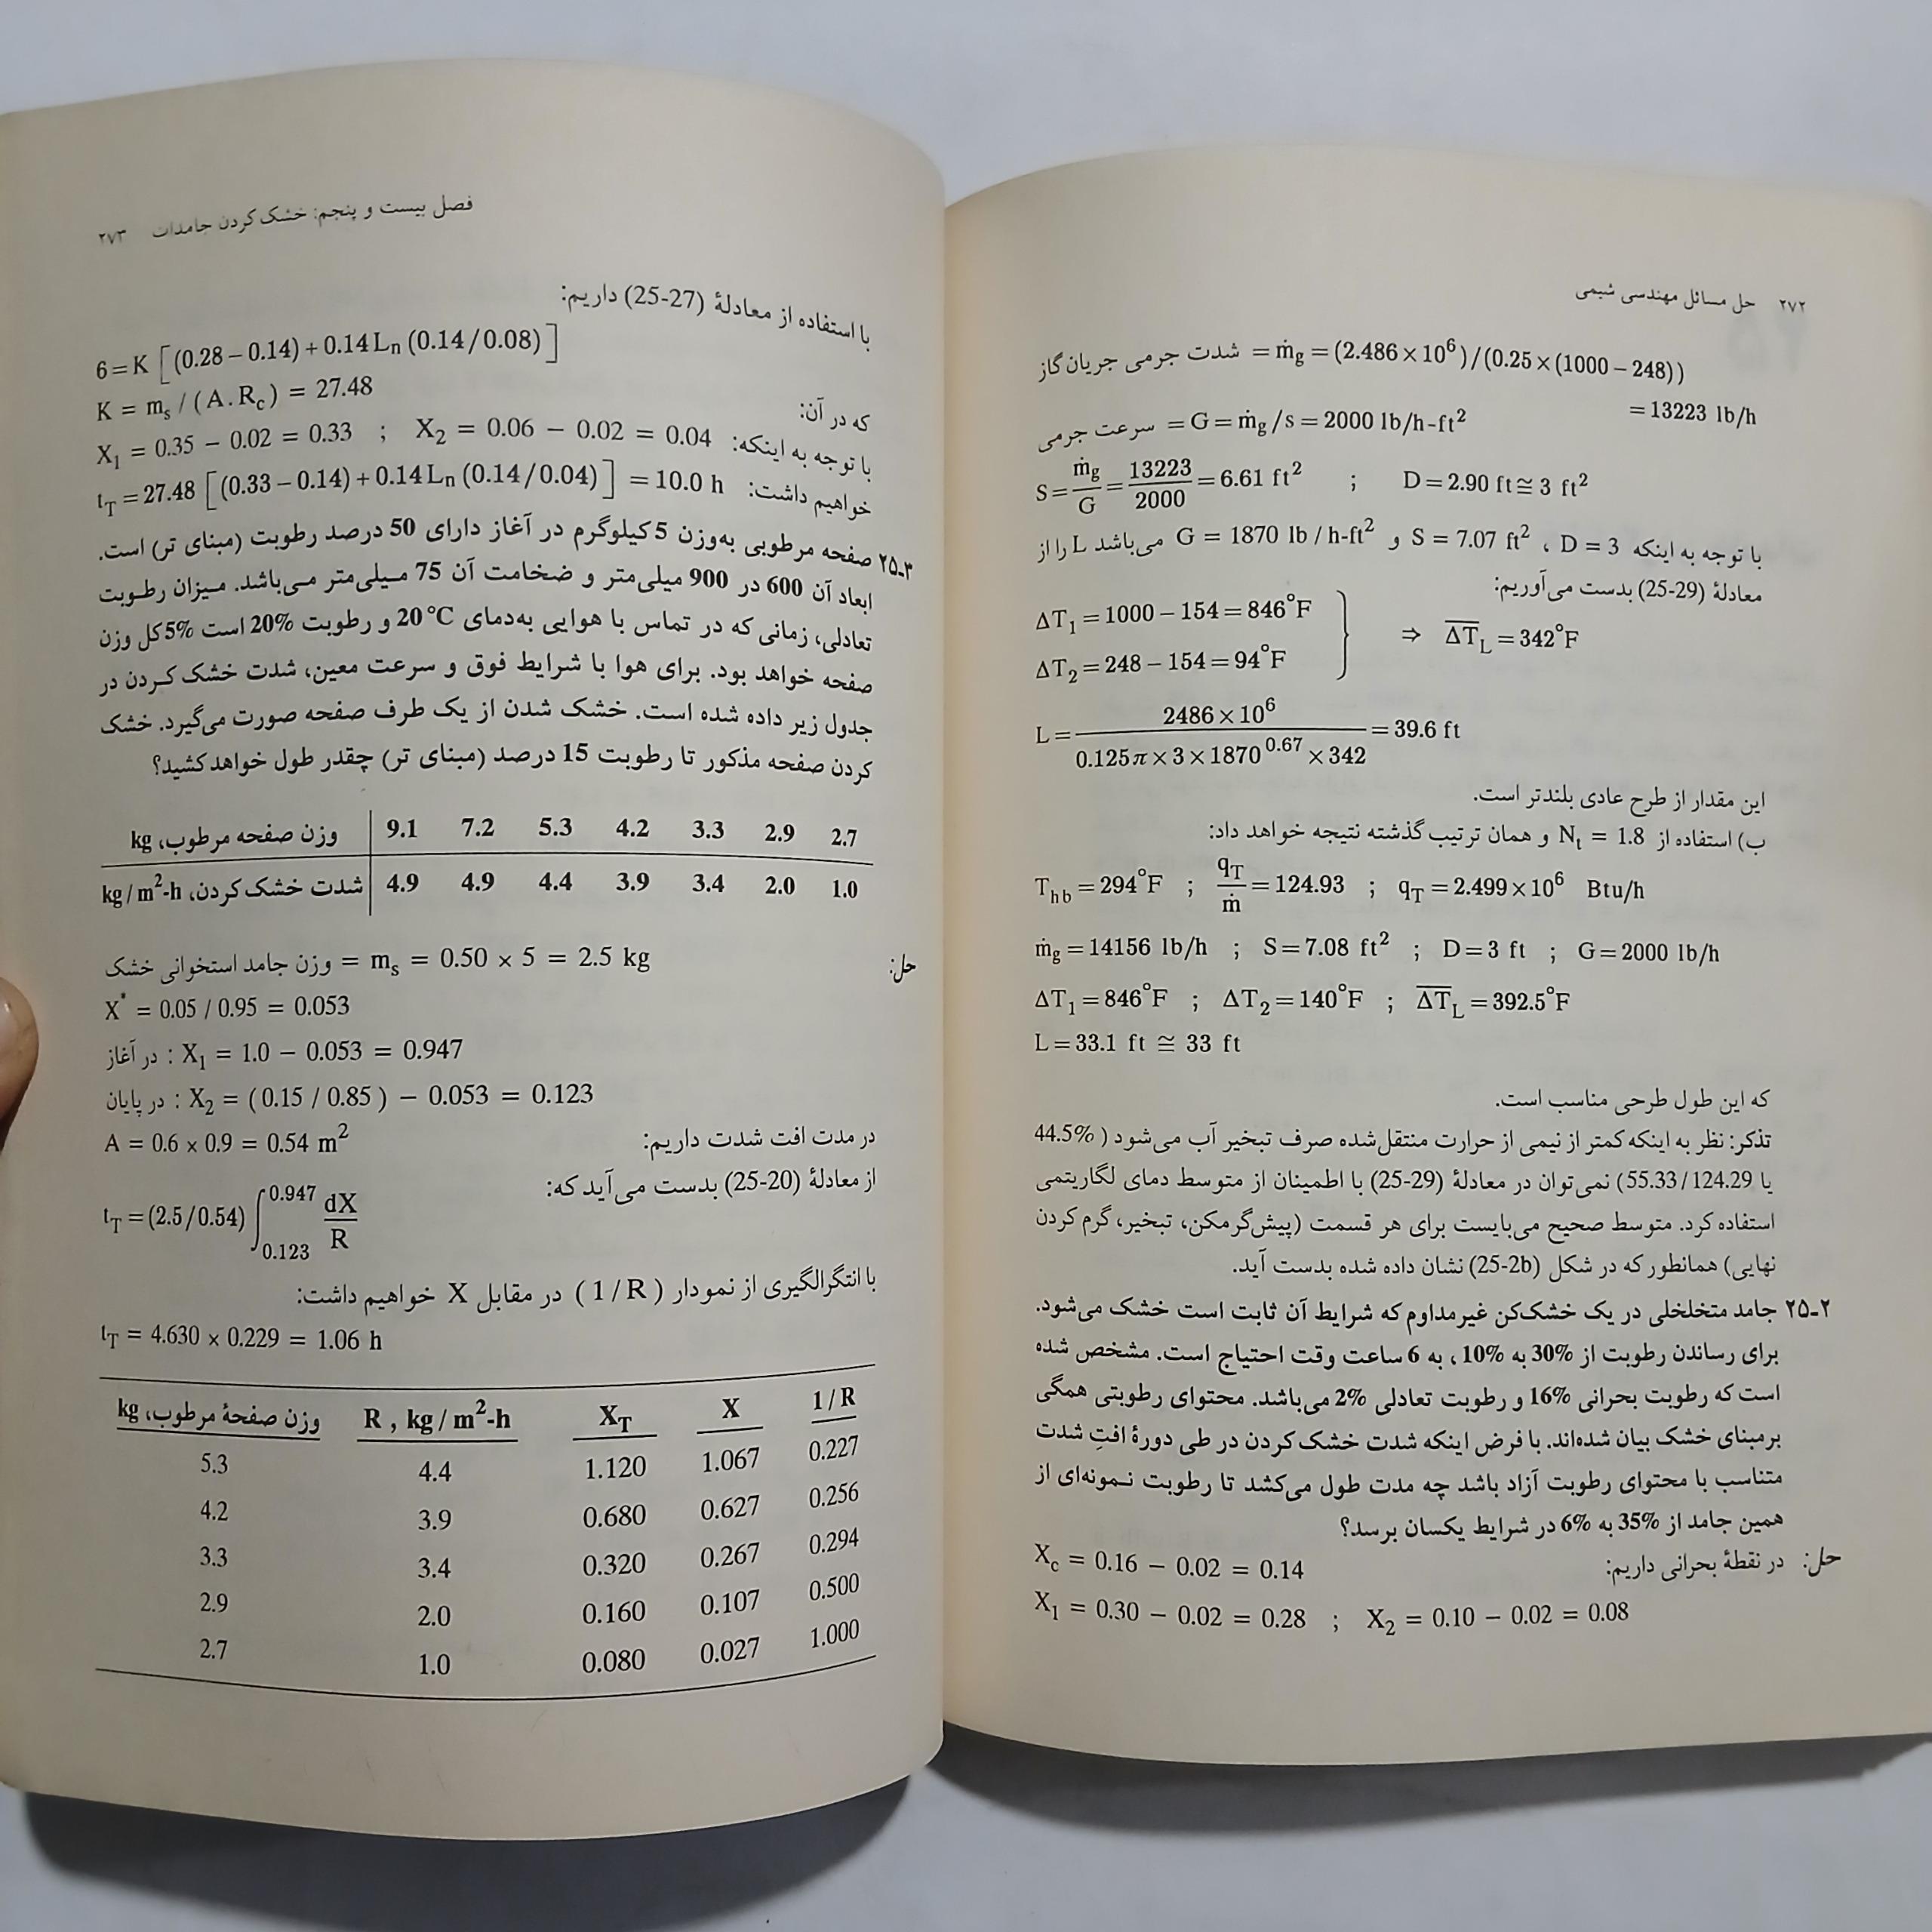 ۲۷۲ حل مسائل مهندسی شیمی
شدت جرمی جریان گاز = ṁg = (2.486 × 10⁶) / (0.25 × (1000 – 248))
= 13223 lb/h
سرعت جرمی = G = ṁg /s = 2000 lb/h-ft²
S = ṁg / G = 13223 / 2000 = 6.61 ft² ; D = 2.90 ft ≅ 3 ft²
با توجه به اینکه D = 3 ، S = 7.07 ft² و G = 1870 lb / h-ft² می‌باشد L را از
معادلهٔ (25-29) بدست می‌آوریم:
ΔT₁ = 1000 – 154 = 846°F
ΔT₂ = 248 – 154 = 94°F } ⇒ ΔT̅_L = 342°F
L = 2486 × 10⁶ / 0.125π × 3 × 1870^0.67 × 342 = 39.6 ft
این مقدار از طرح عادی بلندتر است.
ب) استفاده از N_t = 1.8 و همان ترتیب گذشته نتیجه خواهد داد:
T_hb = 294°F ; q_T / ṁ = 124.93 ; q_T = 2.499 × 10⁶ Btu/h
ṁg = 14156 lb/h ; S = 7.08 ft² ; D = 3 ft ; G = 2000 lb/h
ΔT₁ = 846°F ; ΔT₂ = 140°F ; ΔT̅_L = 392.5°F
L = 33.1 ft ≅ 33 ft
که این طول طرحی مناسب است.
تذکر: نظر به اینکه کمتر از نیمی از حرارت منتقل‌شده صرف تبخیر آب می‌شود ( 44.5%
یا 55.33/124.29) نمی‌توان در معادلهٔ (25-29) با اطمینان از متوسط دمای لگاریتمی
استفاده کرد. متوسط صحیح می‌بایست برای هر قسمت (پیش‌گرمکن، تبخیر، گرم کردن
نهایی) همانطور که در شکل (25-2b) نشان داده شده بدست آید.
۲۵-۲ جامد متخلخلی در یک خشک‌کن غیرمداوم که شرایط آن ثابت است خشک می‌شود.
برای رساندن رطوبت از 30% به 10% ، به 6 ساعت وقت احتیاج است. مشخص شده
است که رطوبت بحرانی 16% و رطوبت تعادلی 2% می‌باشد. محتوای رطوبتی همگی
برمبنای خشک بیان شده‌اند. با فرض اینکه شدت خشک کردن در طی دورهٔ افتِ شدت
متناسب با محتوای رطوبت آزاد باشد چه مدت طول می‌کشد تا رطوبت نمونه‌ای از
همین جامد از 35% به 6% در شرایط یکسان برسد؟
حل: در نقطهٔ بحرانی داریم: X_c = 0.16 – 0.02 = 0.14
X₁ = 0.30 – 0.02 = 0.28 ; X₂ = 0.10 – 0.02 = 0.08
فصل بیست و پنجم: خشک کردن جامدات ۲۷۳
با استفاده از معادلهٔ (25-27) داریم:
6 = K [(0.28 – 0.14) + 0.14 Ln (0.14 / 0.08)]
که در آن: K = m_s / (A . R_c) = 27.48
با توجه به اینکه: X₁ = 0.35 – 0.02 = 0.33 ; X₂ = 0.06 – 0.02 = 0.04
خواهیم داشت: t_T = 27.48 [(0.33 – 0.14) + 0.14 Ln (0.14 / 0.04)] = 10.0 h
۲۵-۳ صفحه مرطوبی به‌وزن 5 کیلوگرم در آغاز دارای 50 درصد رطوبت (مبنای تر) است.
ابعاد آن 600 در 900 میلی‌متر و ضخامت آن 75 میلی‌متر می‌باشد. میزان رطوبت
تعادلی، زمانی که در تماس با هوایی به‌دمای 20 °C و رطوبت 20% است 5% کل وزن
صفحه خواهد بود. برای هوا با شرایط فوق و سرعت معین، شدت خشک کردن در
جدول زیر داده شده است. خشک شدن از یک طرف صفحه صورت می‌گیرد. خشک
کردن صفحه مذکور تا رطوبت 15 درصد (مبنای تر) چقدر طول خواهد کشید؟
وزن صفحه مرطوب، kg 9.1 7.2 5.3 4.2 3.3 2.9 2.7
شدت خشک کردن، kg / m²-h 4.9 4.9 4.4 3.9 3.4 2.0 1.0
حل: وزن جامد استخوانی خشک = m_s = 0.50 × 5 = 2.5 kg
X* = 0.05 / 0.95 = 0.053
در آغاز : X₁ = 1.0 – 0.053 = 0.947
در پایان : X₂ = ( 0.15 / 0.85 ) – 0.053 = 0.123
در مدت افت شدت داریم: A = 0.6 × 0.9 = 0.54 m²
از معادلهٔ (25-20) بدست می‌آید که:
t_T = (2.5 / 0.54) ∫_0.123^0.947 dX / R
با انتگرالگیری از نمودار ( 1 / R ) در مقابل X خواهیم داشت:
t_T = 4.630 × 0.229 = 1.06 h
وزن صفحهٔ مرطوب، kg R , kg / m²-h X_T X 1 / R
5.3 4.4 1.120 1.067 0.227
4.2 3.9 0.680 0.627 0.256
3.3 3.4 0.320 0.267 0.294
2.9 2.0 0.160 0.107 0.500
2.7 1.0 0.080 0.027 1.000